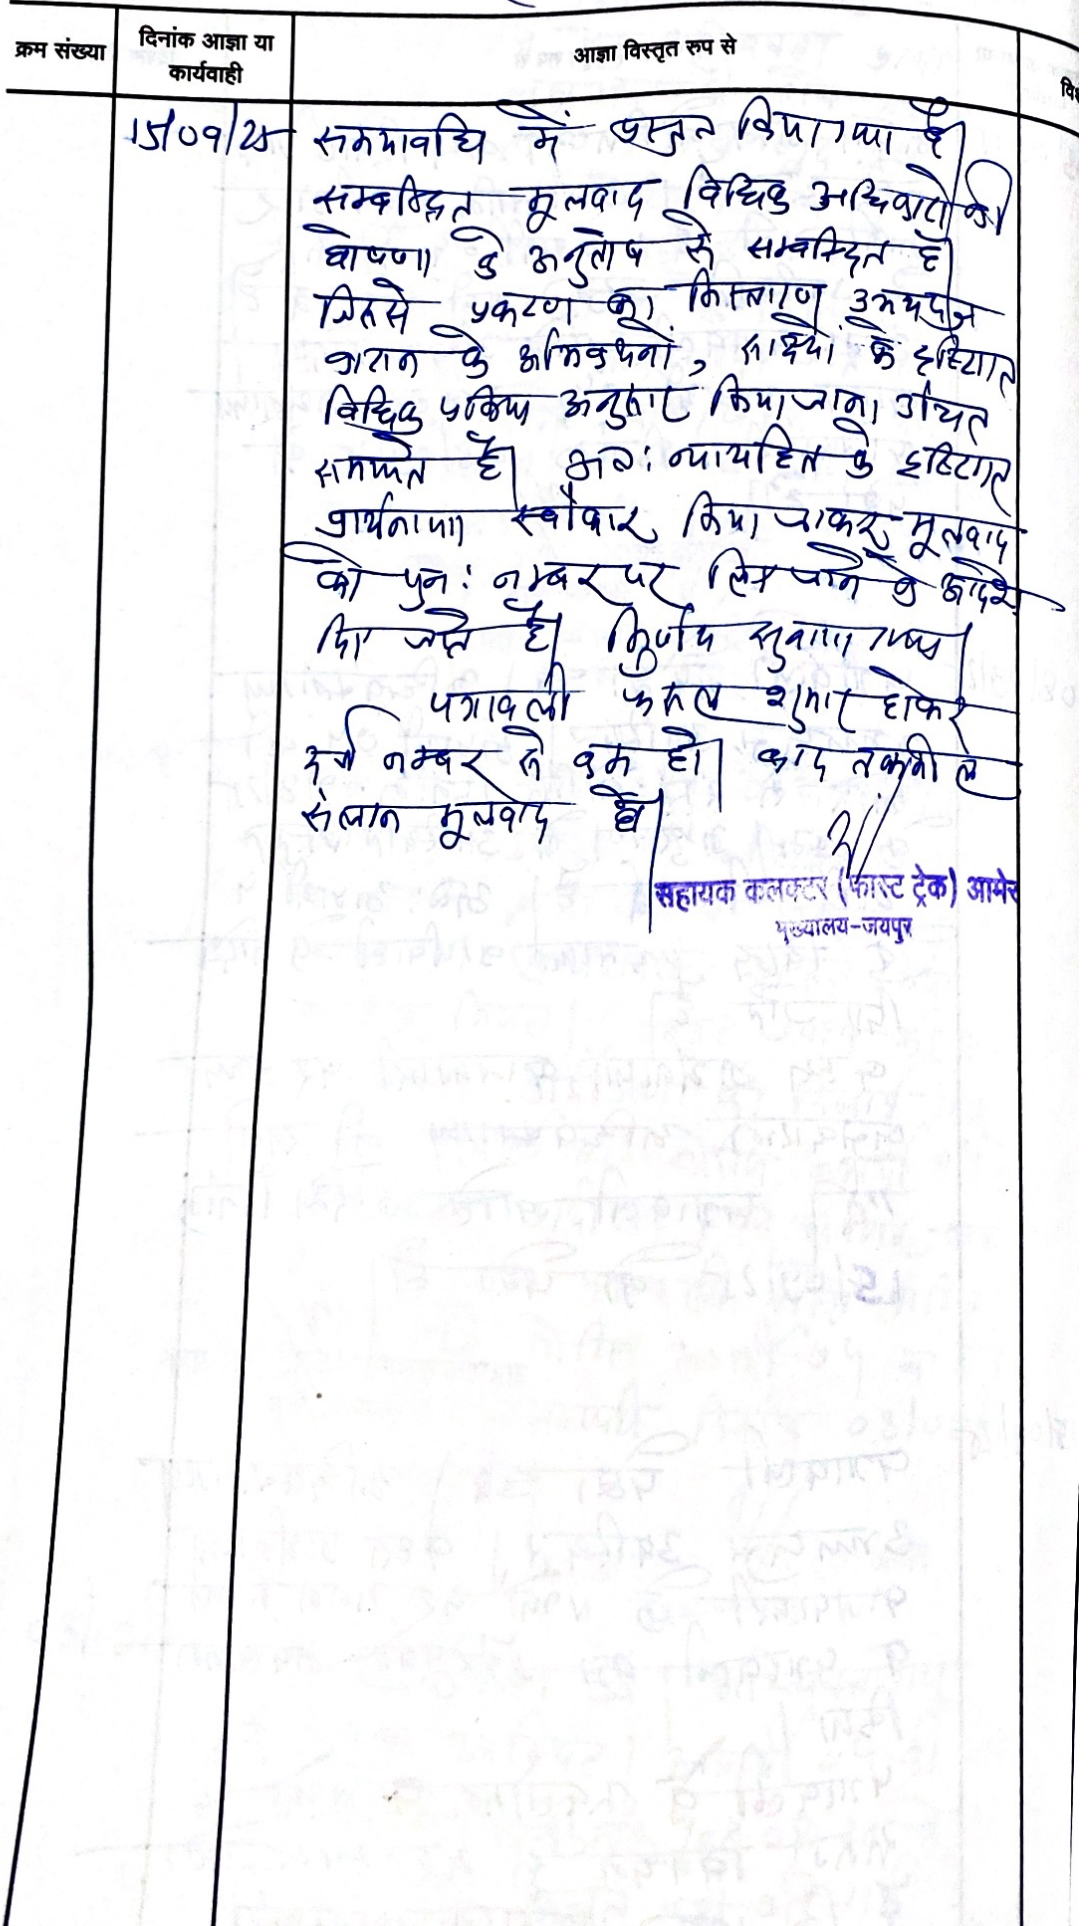 क्रम संख्या
दिनांक आज्ञा या
कार्यवाही
आज्ञा विस्तृत रुप से
15/09/25
समयावधि में प्रस्तुत किया गया है।
सम्बन्धित मूलवाद विधिक अधिकारो की
घोषणा के अनुतोष से सम्बन्धित है।
जिससे प्रकरण का निस्तारण उभयपक्ष
के अभिवचनो, साक्ष्यो के दृष्टिगत
विधिक प्रकिया अनुसार किया जाना उचित
है। अतः न्यायहित के दृष्टिगत
प्रार्थनापत्र स्वीकार किया जाकर मूलवाद
को पुनः नम्बर पर लिए जाने के आदेश
दिए जाते है। निर्णय सुनाया गया।
पत्रावली फैसल शुमार होकर
दर्ज नम्बर से कम हो। बाद तकमील
संलग्न मूलवाद हो।
सहायक कलक्टर (फास्ट ट्रेक) आमेर
मुख्यालय-जयपुर